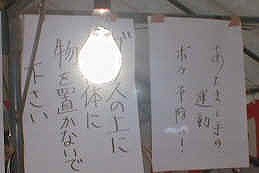 人の上に
体に
物を置かないで
下さい
あたまと手の
運動
ボケ予防に!